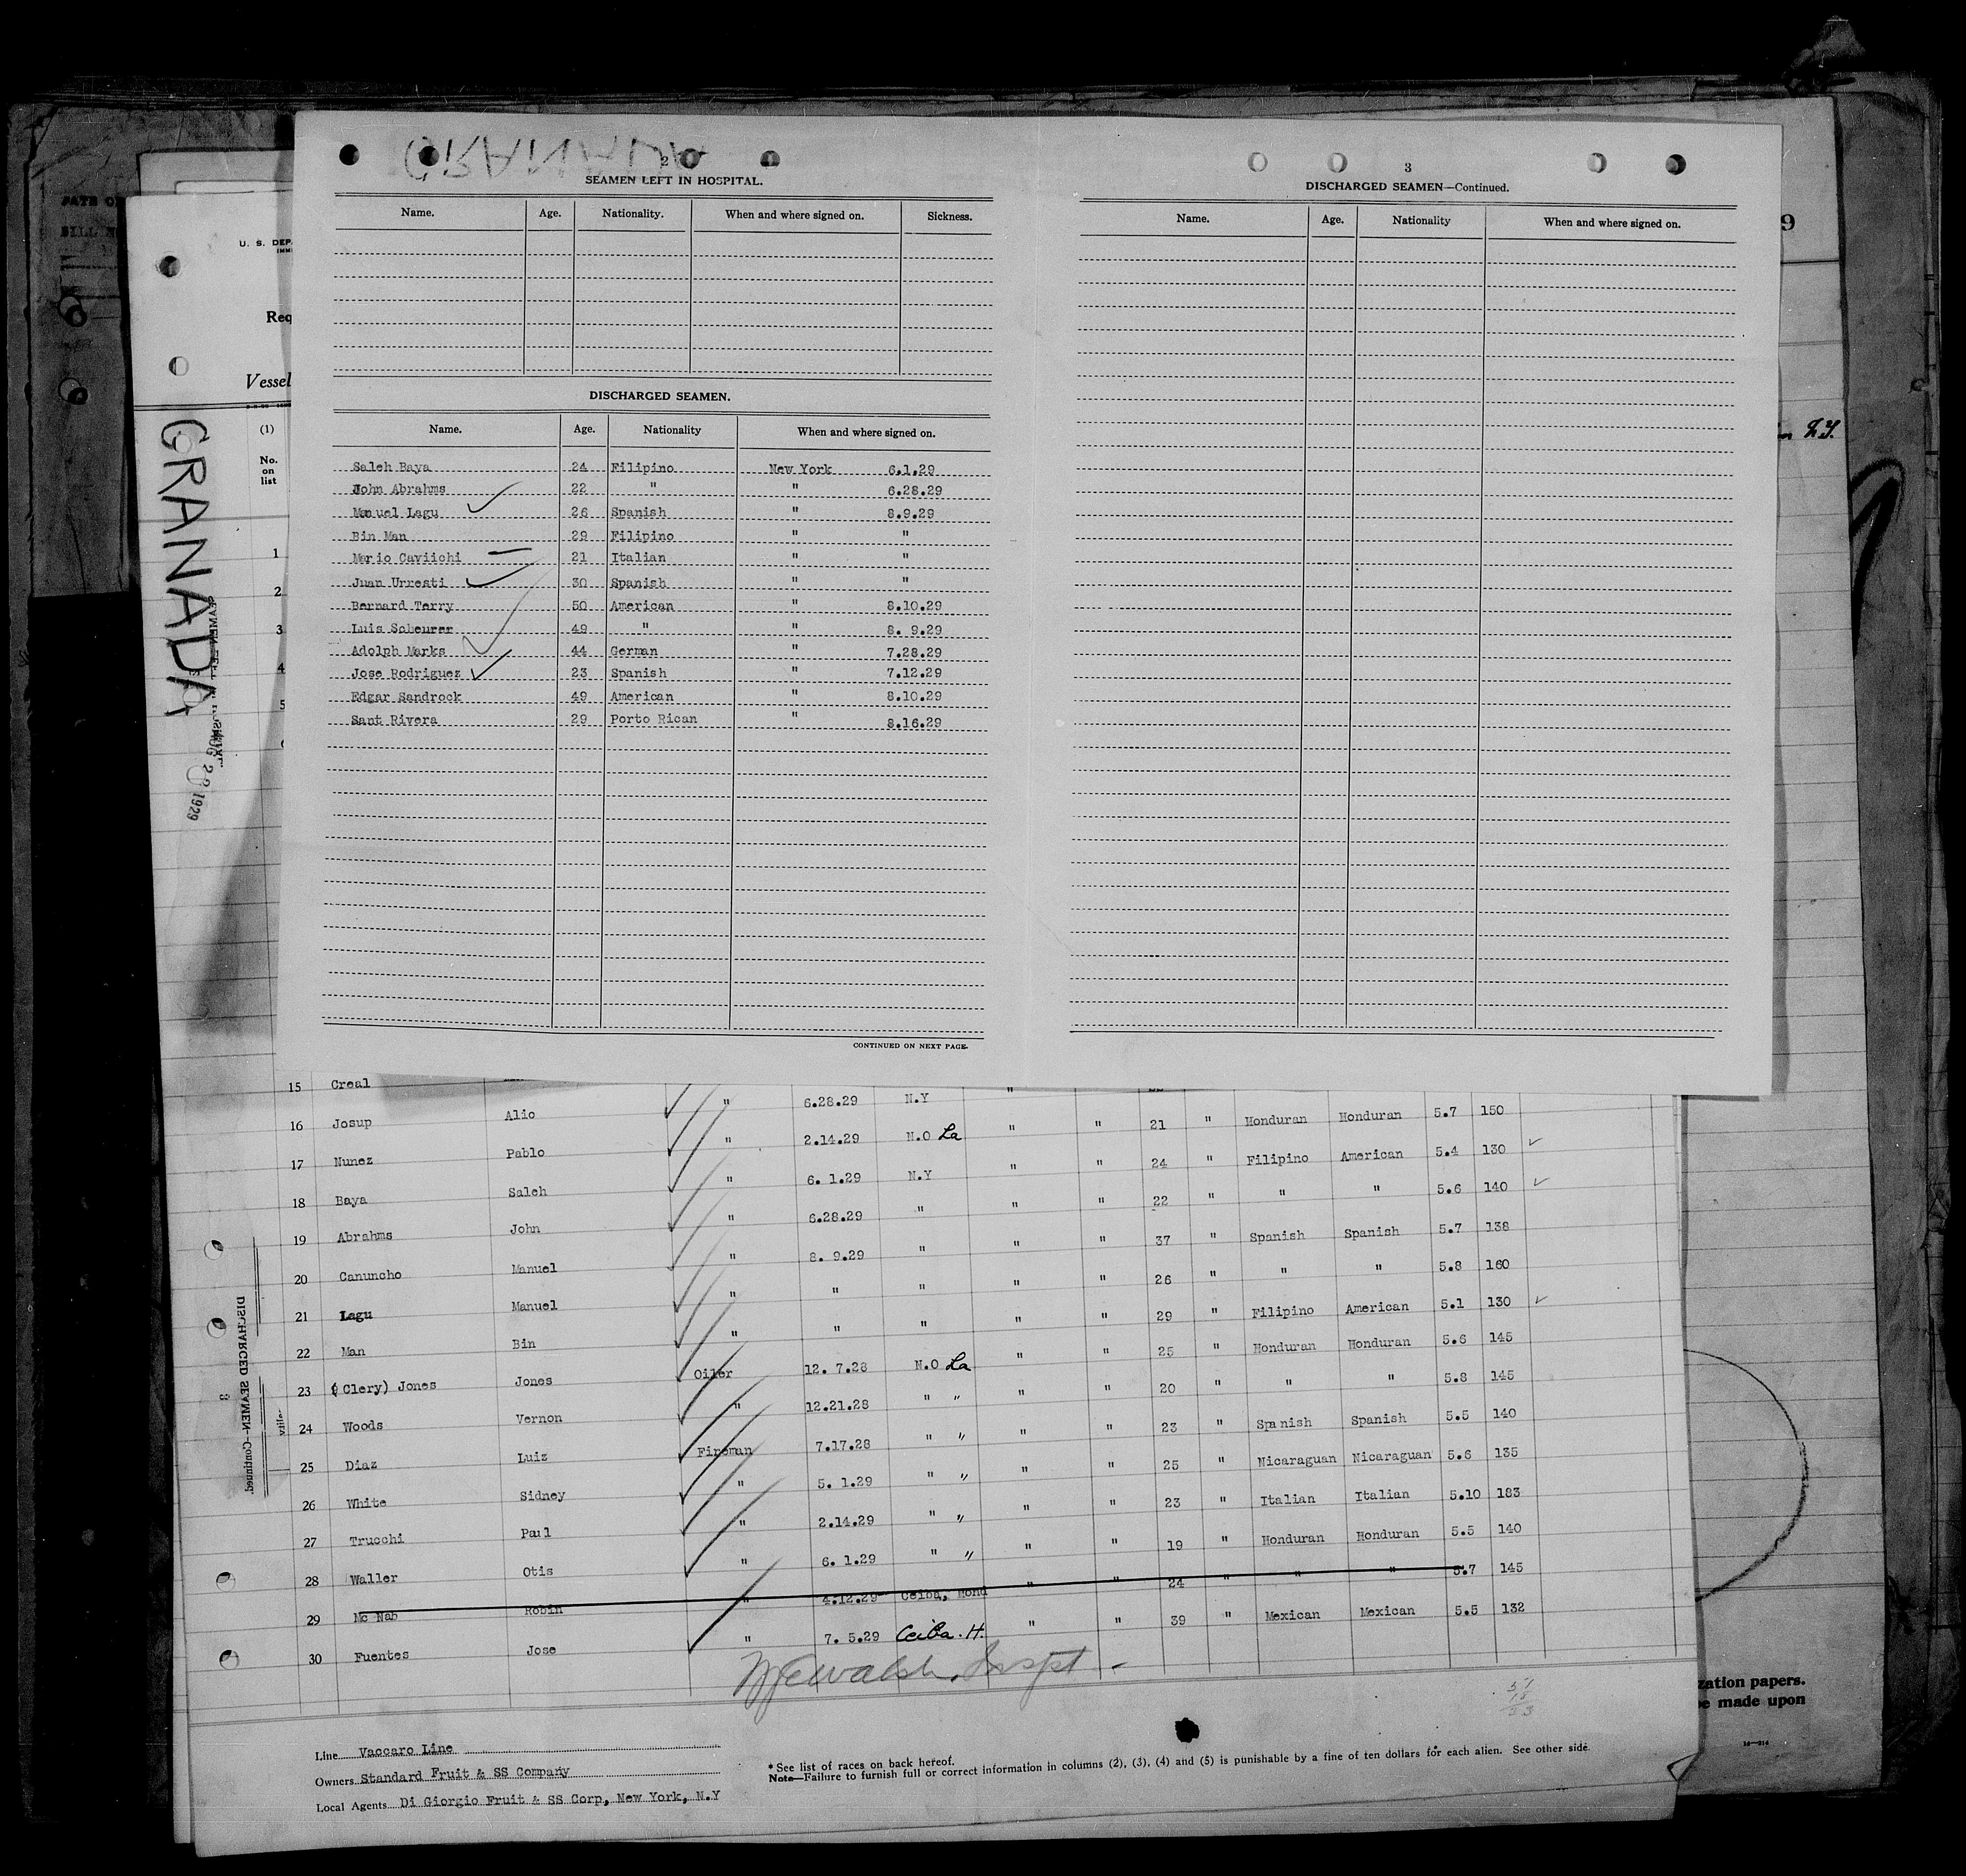 GRANADA
2
SEAMEN LEFT IN HOSPITAL.
Name. Age. Nationality. When and where signed on. Sickness.
DISCHARGED SEAMEN.
Name. Age. Nationality When and where signed on.
Saleh Baya 24 Filipino New York 6.1.29
John Abrahms 22 " " 6.28.29
Manuel Lagu 26 Spanish " 8.9.29
Bin Man 29 Filipino " "
Mario Caviichi 21 Italian " "
Juan Urresti 30 Spanish " "
Bernard Terry 50 American " 8.10.29
Luis Scheurer 49 " " 8. 9.29
Adolph Marks 44 German " 7.28.29
Jose Rodriguez 23 Spanish " 7.12.29
Edgar Sandrock 49 American " 8.10.29
Sant Rivera 29 Porto Rican " 8.16.29
CONTINUED ON NEXT PAGE.
3
DISCHARGED SEAMEN—Continued.
Name. Age. Nationality When and where signed on.
9
U. S. DEP
IMMI
Req
Vessel
(1)
No.
on
list
1
2
3
4
5
GRANADA
AUG 22 1929
15 Creal
16 Josup Alio " 6.28.29 N.Y " " 21 " Honduran Honduran 5.7 150
17 Nunez Pablo " 2.14.29 N.O La " " 24 " Filipino American 5.4 130
18 Baya Saleh " 6. 1.29 N.Y " " 22 " " " 5.6 140
19 Abrahms John " 6.28.29 " " " 37 " Spanish Spanish 5.7 138
20 Canuncho Manuel " 8. 9.29 " " " 26 " " " 5.8 160
21 Lagu Manuel " " " " " 29 " Filipino American 5.1 130
22 Man Bin " " " " " 25 " Honduran Honduran 5.6 145
23 (Clery) Jones Jones Oiler 12. 7.28 N.O La " " 20 " " " 5.8 145
24 Woods Vernon " 12.21.28 " " " " 23 " Spanish Spanish 5.5 140
25 Diaz Luiz Fireman 7.17.28 " " " " 25 " Nicaraguan Nicaraguan 5.6 135
26 White Sidney " 5. 1.29 " " " " 23 " Italian Italian 5.10 183
27 Trucchi Paul " 2.14.29 " " " " 19 " Honduran Honduran 5.5 140
28 Waller Otis " 6. 1.29 " " " " 24 " " " 5.7 145
29 Mc Nab Robin " 4.12.29 Ceiba, Hond " " 39 " Mexican Mexican 5.5 132
30 Fuentes Jose " 7. 5.29 Ceiba. H.
Walsh, Inspt
Line Vaccaro Line
Owners Standard Fruit & SS Company
Local Agents Di Giorgio Fruit & SS Corp, New York, N.Y
* See list of races on back hereof.
Note—Failure to furnish full or correct information in columns (2), (3), (4) and (5) is punishable by a fine of ten dollars for each alien. See other side.
DISCHARGED SEAMEN—Continued.
3
zation papers.
be made upon